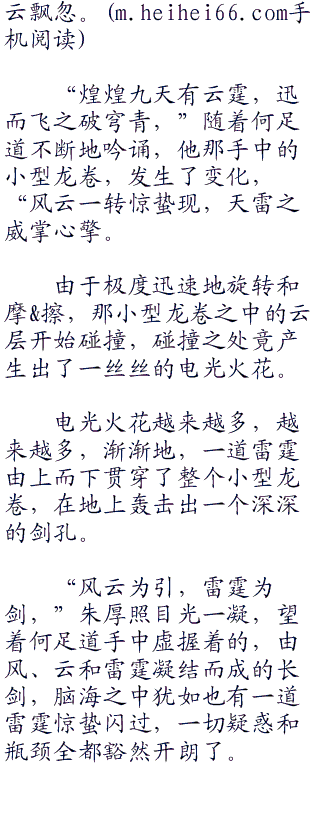 云飘忽。(m.heihei66.com手
机阅读)
“煌煌九天有云霆，迅
而飞之破穹青，”随着何足
道不断地吟诵，他那手中的
小型龙卷，发生了变化，
“风云一转惊蛰现，天雷之
威掌心擎。
由于极度迅速地旋转和
摩&擦，那小型龙卷之中的云
层开始碰撞，碰撞之处竟产
生出了一丝丝的电光火花。
电光火花越来越多，越
来越多，渐渐地，一道雷霆
由上而下贯穿了整个小型龙
卷，在地上轰击出一个深深
的剑孔。
“风云为引，雷霆为
剑，”朱厚照目光一凝，望
着何足道手中虚握着的，由
风、云和雷霆凝结而成的长
剑，脑海之中犹如也有一道
雷霆惊蛰闪过，一切疑惑和
瓶颈全都豁然开朗了。